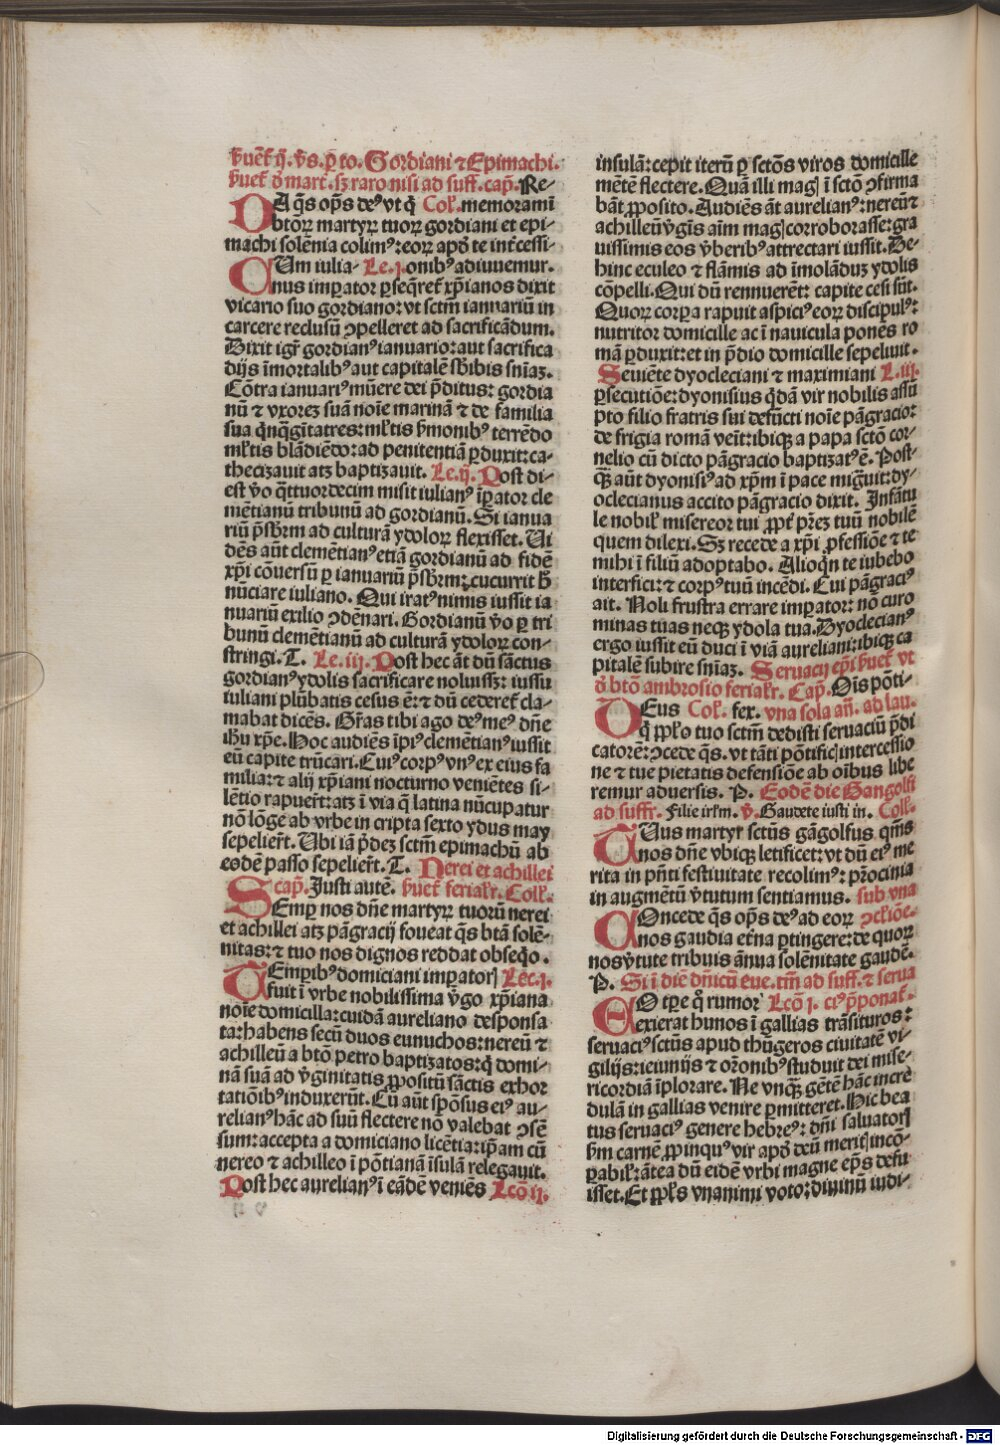 ṽuer̃t ij. ṽs. ꝑ to. Gordiani ⁊ Epimachi.
ṽuer̃t ꝺ mart̃. sꝫ raro nisi ad suff. cap̃. Re-
DA q̃s op̃s deꝰ vt q̃ Col̃. memoramĩ
btõꝝ martyꝝ tuoꝝ gordiani et epi-
machi solẽnia colimꝰ: eoꝝ apð te int̃cessi-
CUm iulia- Le. j. onibꝰ adiuuemur.
nus imꝑator ꝑseq̃ret̃ xp̃ianos dixit
vicario suo gordiano: vt sct̃m ianuariũ in
carcere reclusũ ꝯpelleret ad sacrificãdum.
Dixit igr̃ gordianꝰ ianuario: aut sacrifica
dijs ĩmortalibꝰ aut capitalẽ sb̃ibis sñiaꝫ.
Cõtra ianuariꝰ mũere dei p̃ditus: gordia
nũ ⁊ vxoreꝫ suã noĩe marinã ⁊ de familia
sua q̃nq̃gĩtatres: ml̃tis ßmonibꝰ terrẽdo
ml̃tis blãdiẽdo: ad penitentiã ꝑduxit: ca-
thecizauit atꝫ baptizauit. Le. ij. Post di-
est ṽo q̃ttuordecim misit iulianꝰ ĩꝑator cle
mẽtianũ tribunũ ad gordianũ. Si ianua
riũ p̃sbr̃m ad culturã ydoloꝝ flexisset. Ui
dẽs aũt clemẽtianꝰ etiã gordianũ ad fidẽ
xp̃i cõuersũ ꝑ ianuariũ p̃sbr̃m: cucurrit ħ
nũciare iuliano. Qui iratꝰ nimis iussit ia
nuariũ exilio ꝯdẽnari. Gordianũ ṽo ꝑ tri
bunũ clemẽtianũ ad culturã ydoloꝝ con-
stringi. T. Le. iij. Post hec ãt dũ sãctus
gordianꝰ ydolis sacrificare noluissꝫ: iussu
iuliani plũbatis cesus ẽ: ⁊ dũ cederet̃ cla-
mabat dicẽs. Gr̃as tibi ago deꝰ meꝰ dñe
ihũ xp̃e. Hoc audiẽs ĩp̃iꝰ clemẽtianꝰ iussit
eũ capite trũcari. Cuiꝰ corpꝰ vnꝰ ex eius fa
milia: ⁊ alij xp̃iani nocturno veniẽtes si-
lẽtio rapuer̃t: atꝫ ĩ via q̃ latina nũcupatur
nõ lõge ab vrbe in cripta sexto ydus may
sepelier̃t. Ubi iã p̃deꝫ sct̃m epimachũ ab
eodẽ passo sepelier̃t. T. Nerei et achillei
cap̃. Justi autẽ. ṽuer̃t ferial̃r. Coll̃.
SEmꝑ nos dñe martyꝝ tuoꝝ nerei
et achillei atꝫ pãgracij foueat q̃s btã solẽ-
nitas: ⁊ tuo nos dignos reddat obseq̃o.
TEmꝑibꝰ domiciani imꝑatorꝭ Lec. j.
fuit ĩ vrbe nobilissima ṽgo xp̃iana
noĩe domicilla: cuidã aureliano desponsa
ta: habens secũ duos eunuchos: nereũ ⁊
achilleũ a btõ petro baptizatos: q̃ domi-
nã suã ad ṽginitatis ꝓpositũ sãctis exhor
tatiõibꝰ induxerũt. Cũ aũt spõsus eiꝰ au-
relianꝰ hãc ad suũ flectere nõ valebat ꝯsẽ
sum: accepta a domiciano licẽtia: ip̃am cũ
nereo ⁊ achilleo ĩ põtianã ĩsulã relegauit.
Post hec aurelianꝰ ĩ eãdẽ veniẽs Lcõ ij.
insulã: cepit iterũ ꝑ sctõs viros domicille
mẽtẽ flectere. Quã illi magꝭ ĩ sctõ ꝯfirma
bãt ꝓposito. Audiẽs ãt aurelianꝰ: nereũ ⁊
achilleũ ṽgĩs aĩm magꝭ corroborasse: gra
uissimis eos ṽberibꝰ attrectari iussit. De-
hinc eculeo ⁊ flãmis ad ĩmolãduꝫ ydolis
cõpelli. Qui dũ rennuerẽt: capite cesi sũt.
Quoꝝ corꝑa rapuit aspiciꝰ eoꝝ discipulꝰ:
nutritor domicille ac ĩ nauicula ponẽs ro
mã ꝑduxit: et in p̃dio domicille sepeliuit.
SEuiẽte dyocleciani ⁊ maximiani L. iij.
ꝑsecutiõe: dyonisius q̃dã vir nobilis assũ
pto filio fratris sui defũcti noĩe pãgracio:
de frigia romã veñt: ibiqꝫ a papa sctõ cor-
nelio cũ dicto pãgracio baptizatꝰ ẽ. Post-
q̃ꝫ aũt dyonisiꝰ ad xp̃m ĩ pace mig̃uit: dy-
oclecianus accito pãgracio dixit. Infãtu
le nobil̃ misereor tui ꝓpt̃ pr̃eꝫ tuũ nobilẽ
quem dilexi. Sꝫ recede a xp̃i ꝓfessiõe ⁊ te
mihi ĩ filiũ adoptabo. Alioq̃n te iubebo
interfici: ⁊ corpꝰ tuũ incẽdi. Cui pãgraciꝰ
ait. Noli frustra errare imꝑator: nõ curo
minas tuas neqꝫ ydola tua. Dyoclecianꝰ
ergo iussit eũ duci ĩ viã aureliani: ibiqꝫ ca
pitalẽ subire sñiaꝫ. Seruacij ep̃i ṽuer̃t vt
ꝺ btõ ambrosio ferial̃r. Cap̃. Oĩs põti-
DEus Col̃. fex. vna sola añ. ad lau.
q̃ pplo tuo sct̃m dedisti seruaciũ p̃di
catorẽ: ꝯcede q̃s. vt tãti põtificꝭ intercessio
ne ⁊ tue pietatis defensiõe ab oĩbus libe
remur aduersis. P. Eodẽ die Gangolfi
ad suffr̃. Filie irl̃m. ṽ. Gaudete iusti in. Coll̃.
TUus martyr sctũs gãgolfus q̃ms
nos dñe vbiqꝫ letificet: vt dũ eiꝰ me
rita in pñti festiuitate recolimꝰ: pr̃ocinia
in augmẽtũ ṽtutum sentiamus. sub vna
COncede q̃s op̃s deꝰ ad eoꝝ ꝯcl̃iõe-
nos gaudia et̃na ꝑtingere: de quoꝝ
nos ṽtute tribuis ãnua solẽnitate gaudẽ.
P. Si ĩ diẽ dñicũ eue. tm̃ ad suff. ⁊ serua
EO tꝑe q̃ rumor Lcõ j. ciꝰ p̃ponat̃.
exierat hunos ĩ gallias trãsituros:
seruaciꝰ sctũs apud thũgeros ciuitatẽ vi-
gilijs: ieiunijs ⁊ orõnibꝰ studuit dei mise-
ricordiã ĩplorare. Ne vnq̃ꝫ gẽtẽ hãc incre
dulã in gallias venire ꝑmitteret. Hic bea
tus seruaciꝰ genere hebreꝰ: dñi saluatorꝭ
ßm carnẽ ꝓpinquꝰ vir apð deũ meritꝭ incõ-
ꝑabil̃: ãtea dũ eidẽ vrbi magne ep̃s defu
isset. Et pplꝭ vnanimi voto: diuinũ iudi-
Digitalisierung gefördert durch die Deutsche Forschungsgemeinschaft - DFG